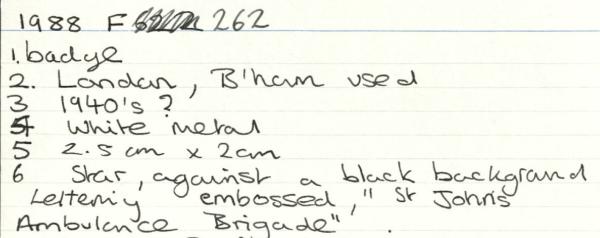 1988 F 262
1. badge
2. London, B'ham used
3 1940's ?
4 White metal
5 2.5 cm x 2cm
6 Star, against a black background
Lettering embossed, "St John's
Ambulance Brigade".